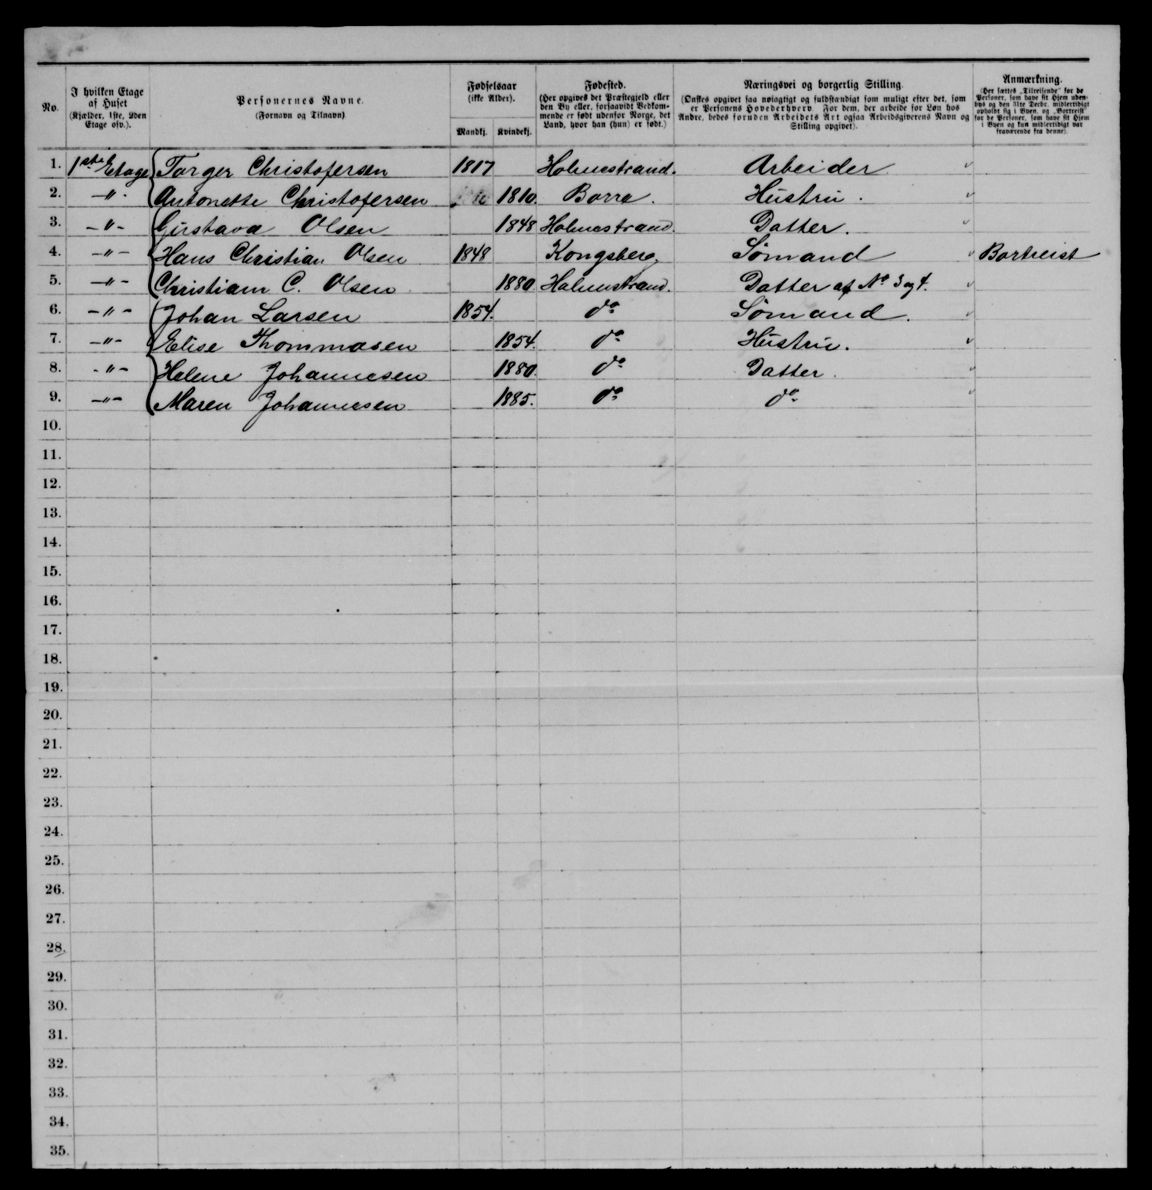 No.
I hvilken Etage
af Huset
(Kjælder, 1ste, 2den
Etage osv.).
Personernes Navne.
(Fornavn og Tilnavn).
Fødselsaar
(ikke Alder).
Mandkj. Kvindekj.
Fødested.
(Her opgives det Præstegjeld eller
den By eller, forsaavidt Vedkom-
mende er født udenfor Norge, det
Land, hvor han (hun) er født.)
Næringsvei og borgerlig Stilling.
(Ønskes opgivet saa nøiagtigt og fuldstændigt som muligt efter det, som
er Personens Hovederhverv. For dem, der arbeide for Løn hos
Andre, bedes foruden Arbeidets Art ogsaa Arbeidsgiverens Navn og
Stilling opgivet).
Anmærkning.
(Her sættes "Tilreisende" for de
Personer, som have sit Hjem uden-
bys og den 31te Decbr. midlertidigt
opholdt sig i Byen, og "Bortreist"
for de Personer, som have sit Hjem
i Byen og kun midlertidigt var
fraværende fra denne).
1. 1ste Etage Torger Christofersen 1817 Holmestrand. Arbeider
2. -"- Antonette Christofersen 1810. Borre. Hustru.
3. -"- Gustava Olsen 1848 Holmestrand. Datter.
4. -"- Hans Christian Olsen 1848 Kongsberg. Sømand Bortreist
5. -"- Christiam C. Olsen 1880. Holmestrand. Datter af No 3 og 4.
6. -"- Johan Larsen 1854. do Sømand.
7. -"- Elise Thommasen 1854. do Hustru.
8. -"- Helene Johannesen 1880. do Datter.
9. -"- Maren Johannesen 1885. do do
10.
11.
12.
13.
14.
15.
16.
17.
18.
19.
20.
21.
22.
23.
24.
25.
26.
27.
28.
29.
30.
31.
32.
33.
34.
35.